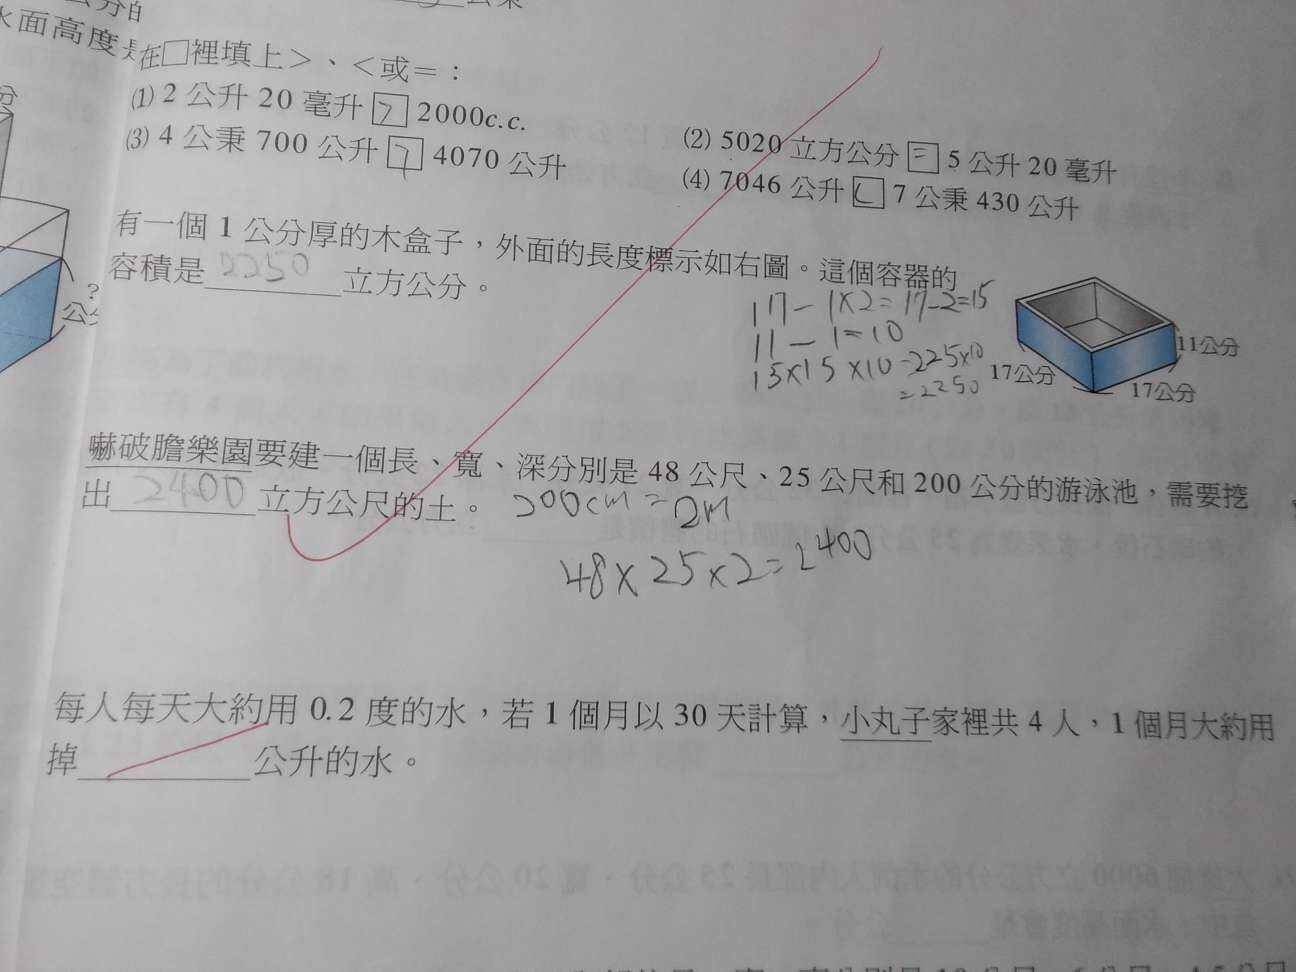 水面高度是
分
?
公分
在□裡填上>、<或=：
(1) 2 公升 20 毫升 > 2000c.c.
(2) 5020 立方公分 = 5 公升 20 毫升
(3) 4 公秉 700 公升 > 4070 公升
(4) 7046 公升 < 7 公秉 430 公升
有一個 1 公分厚的木盒子，外面的長度標示如右圖。這個容器的
容積是 2250 立方公分。
17-1×2=17-2=15
11-1=10
15×15×10=225×10
=2250
11公分
17公分
17公分
嚇破膽樂園要建一個長、寬、深分別是 48 公尺、25 公尺和 200 公分的游泳池，需要挖
出 2400 立方公尺的土。
200cm=2M
48×25×2=2400
每人每天大約用 0.2 度的水，若 1 個月以 30 天計算，小丸子家裡共 4 人，1 個月大約用
掉 公升的水。